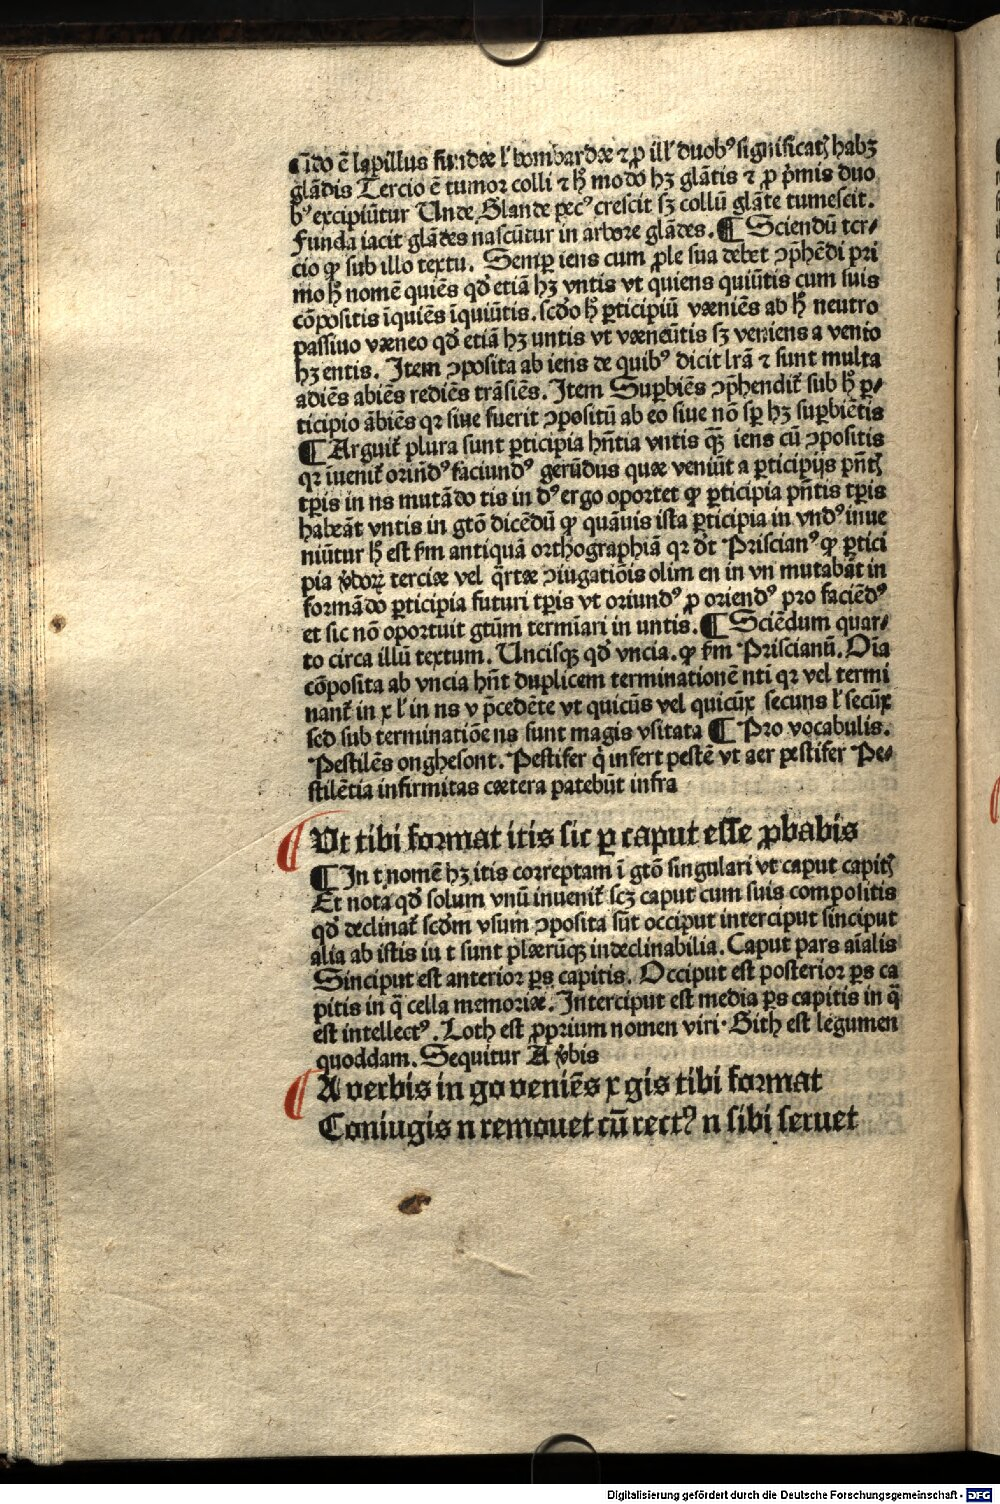 q̄do ē lapillus fundæ lꝰ bombardæ ⁊ ꝓ illꝰ duobꝰ significatꝭ habꝫ
glādis Tercio ē tumoꝛ colli ⁊ hꝰ modo hꝫ glātis ⁊ ꝓ p̄mis duo
bꝰ excipiūtur Unde Glande pecꝰ crescit sꝫ collū glāte tumescit.
Funda iacit glādes nascūtur in arboꝛe glādes. ¶ Sciendū ter⸗
cio ꝙ sub illo textu. Semꝑ iens cum ꝓle sua debet ꝯp̄hēdi pri
mo hꝰ nomē quiēs qď etiā hꝫ vntis vt quiens quiūtis cum suis
cōpositis īquiēs īquiūtis. scďo hꝰ ꝑticipiū væniēs ab hꝰ neutro
passiuo væneo qď etiā hꝫ untis vt væneūtis sꝫ veniens a venio
hꝫ entis. Item ꝯposita ab iens de quibꝰ dicit lr̄a ⁊ sunt multa
adiēs abiēs rediēs trāsiēs. Item Suꝑbiēs ꝯp̄hendit̄ sub hꝰ ꝑ⸗
ticipio ābiēs qꝛ siue fuerit ꝯpositū ab eo siue nō sꝑ hꝫ suꝑbiētis
¶ Arguit̄ plura sunt ꝑticipia hn̄tia vntis qꝫ̄ iens cū ꝯpositis
qꝛ īuenit̄ oriūdꝰ faciundꝰ gerūdus quæ veniūt a ꝑticipijs pn̄tꝭ
tꝑis in ns mutādo tis in dꝰ ergo opoꝛtet ꝙ ꝑticipia pn̄tis tꝑis
habeāt vntis in gtō dicēdū ꝙ quāuis ista ꝑticipia in vndꝰ inue
niūtur hꝰ est ẜm antiquā oꝛthographiā qꝛ dꝰt Priscianꝰ ꝙ ꝑtici
pia v̇boꝝ terciæ vel q̄rtæ ꝯiugatiōis olim en in vn mutabāt in
foꝛmādo ꝑticipia futuri tꝑis vt oꝛiundꝰ ꝓ oꝛiendꝰ pro faciēdꝰ
et sic nō opoꝛtuit gtūm termīari in untis. ¶ Sciēdum quar⸗
to circa illū textum. Uncisqꝫ qď vncia. ꝙ ẜm Priscianū. Oīa
cōposita ab vncia hn̄t duplicem terminationē nti qꝛ vel termi
nant̄ in x lꝰ in ns v p̄cedēte vt quicūs vel quicūx secuns lꝰ secūx
sed sub terminatiōe ns sunt magis vsitata ¶ Pꝛo vocabulis.
Pestilēs onghesont. Pestifer q̇ infert pestē vt aer pestifer Pe⸗
stilētia infirmitas cætera patebūt infra
Ut tibi foꝛmat itis sic ꝑ caput esse ꝓbabis
¶ In t nomē hꝫ itis coꝛreptam ī gtō singulari vt caput capitꝭ
Et nota qď solum vnū inuenit̄ scꝫ caput cum suis compositis
qď declinat̄ scďm vsum ꝯposita sūt occiput interciput sinciput
alia ab istis iu t sunt plærūqꝫ indeclinabilia. Caput pars aīalis
Sinciput est anterioꝛ ꝑs capitis. Occiput est posterioꝛ ꝑs ca
pitis in q̄ cella memoꝛiæ. Interciput est media ꝑs capitis in q̄
est intellectꝰ. Loth est ꝓprium nomen viri. Gith est legumen
quoddam. Sequitur A v̇bis
A verbis in go veniēs x gis tibi foꝛmat
Coniugis n remouet cū rectꝰ n sibi seruet
Digitalisierung gefördert durch die Deutsche Forschungsgemeinschaft - DFG